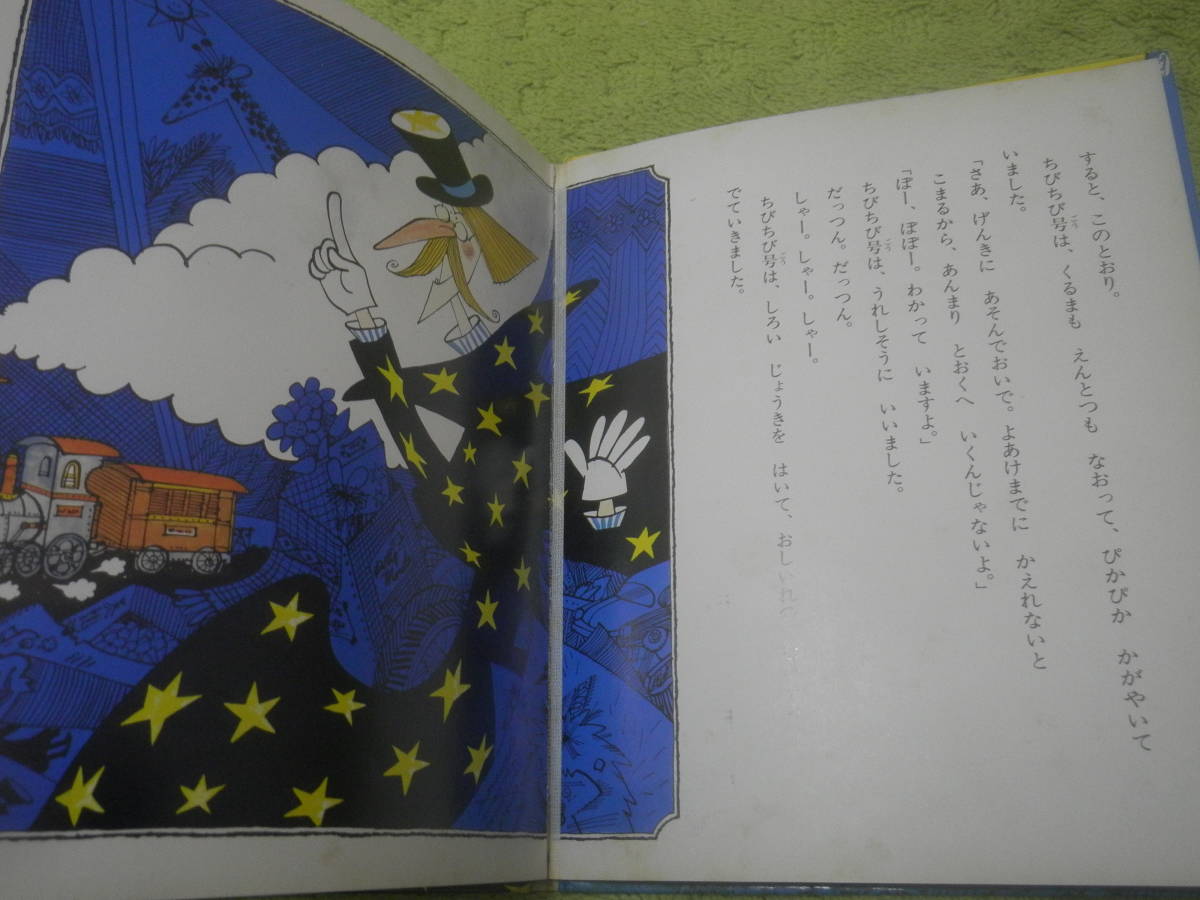 すると、このとおり。
ちびちび号は、くるまも　えんとつも　なおって、ぴかぴか　かがやいて
いました。
「さあ、げんきに　あそんでおいで。よあけまでに　かえれないと
こまるから、あんまり　とおくへ　いくんじゃないよ。」
「ぽー、ぽぽー。わかって　いますよ。」
ちびちび号は、うれしそうに　いいました。
だっつん。だっつん。
しゃー。しゃー。しゃー。
ちびちび号は、しろい　じょうきを　はいて、おしいれの
でていきました。